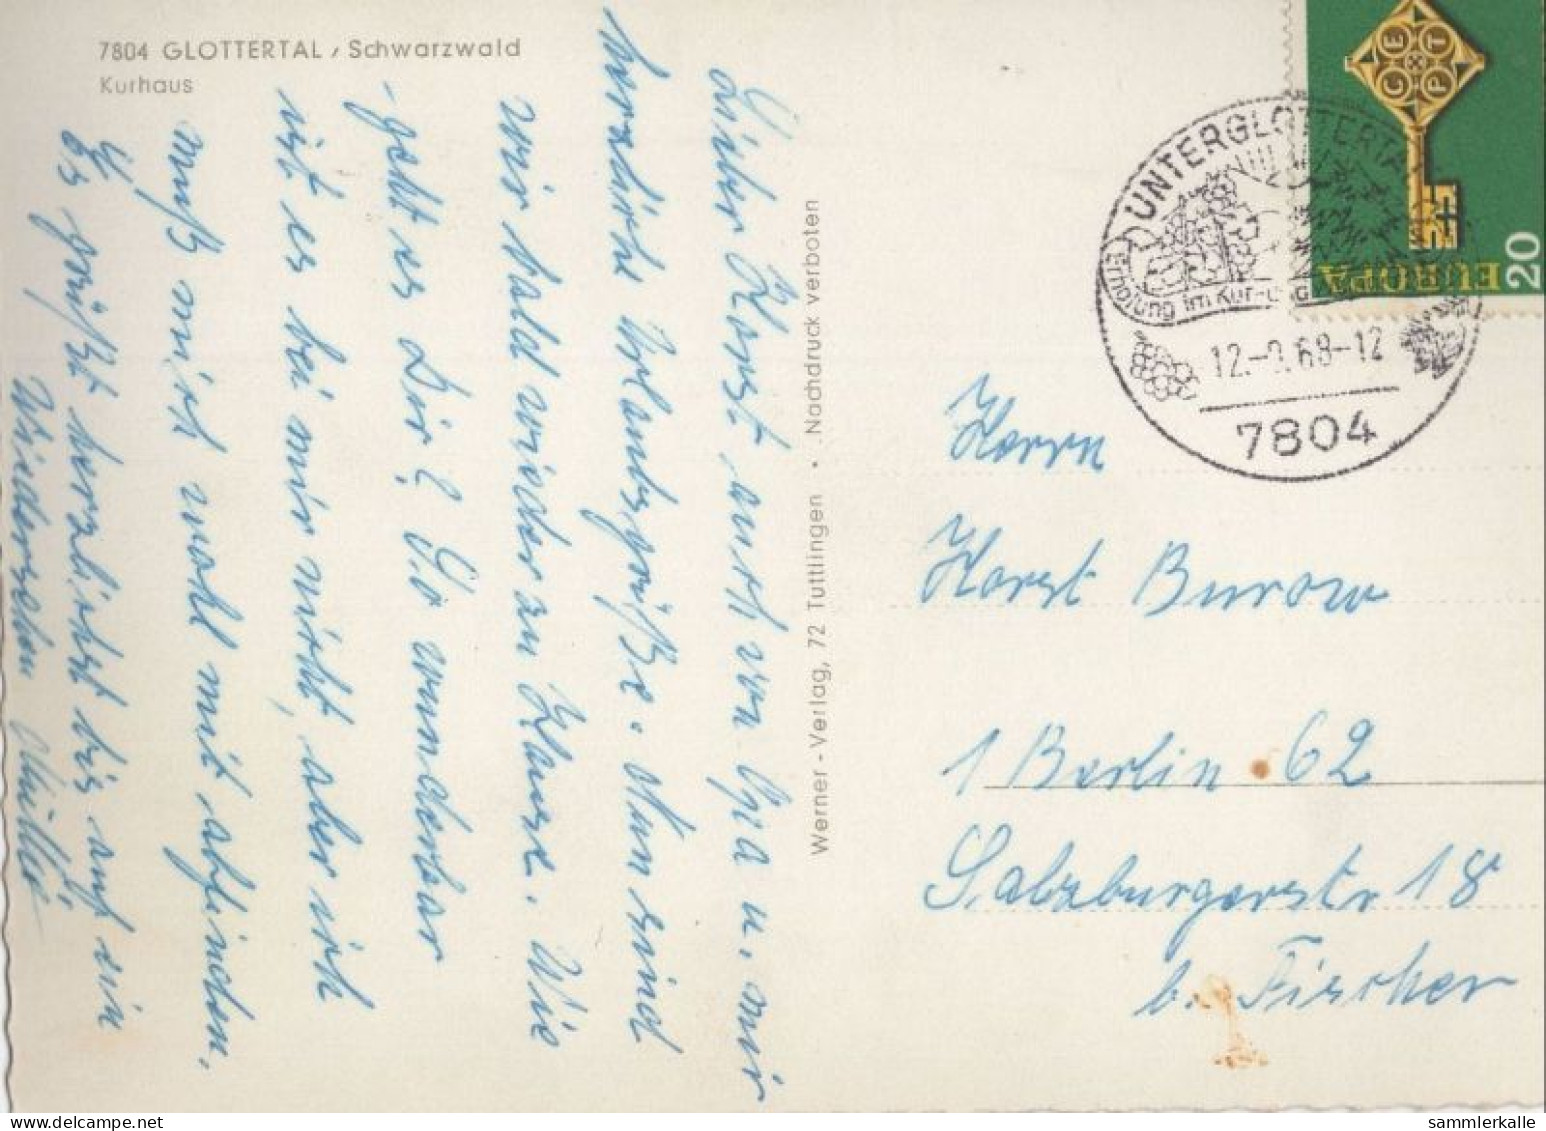 7804 GLOTTERTAL / Schwarzwald
Kurhaus
Lieber Horst, auch von Opa u. mir
herzliche Urlaubsgrüße. Nun sind
wir bald wieder zu Hause. Wie
geht es Dir? So wunderbar
ist es bei mir nicht, aber ich
muß mich wohl mit abfinden.
Es grüßt herzlichst bis auf ein
Wiedersehen
Werner - Verlag, 72 Tuttlingen • Nachdruck verboten
CEPT
EUROPA
20
UNTERGLOTTERTAL
Erholung im Kur-
12.-9.68-12
7804
Herrn
Horst Burow
1 Berlin 62
Salzburgerstr 18
b. Fischer
sammlerkalle.com